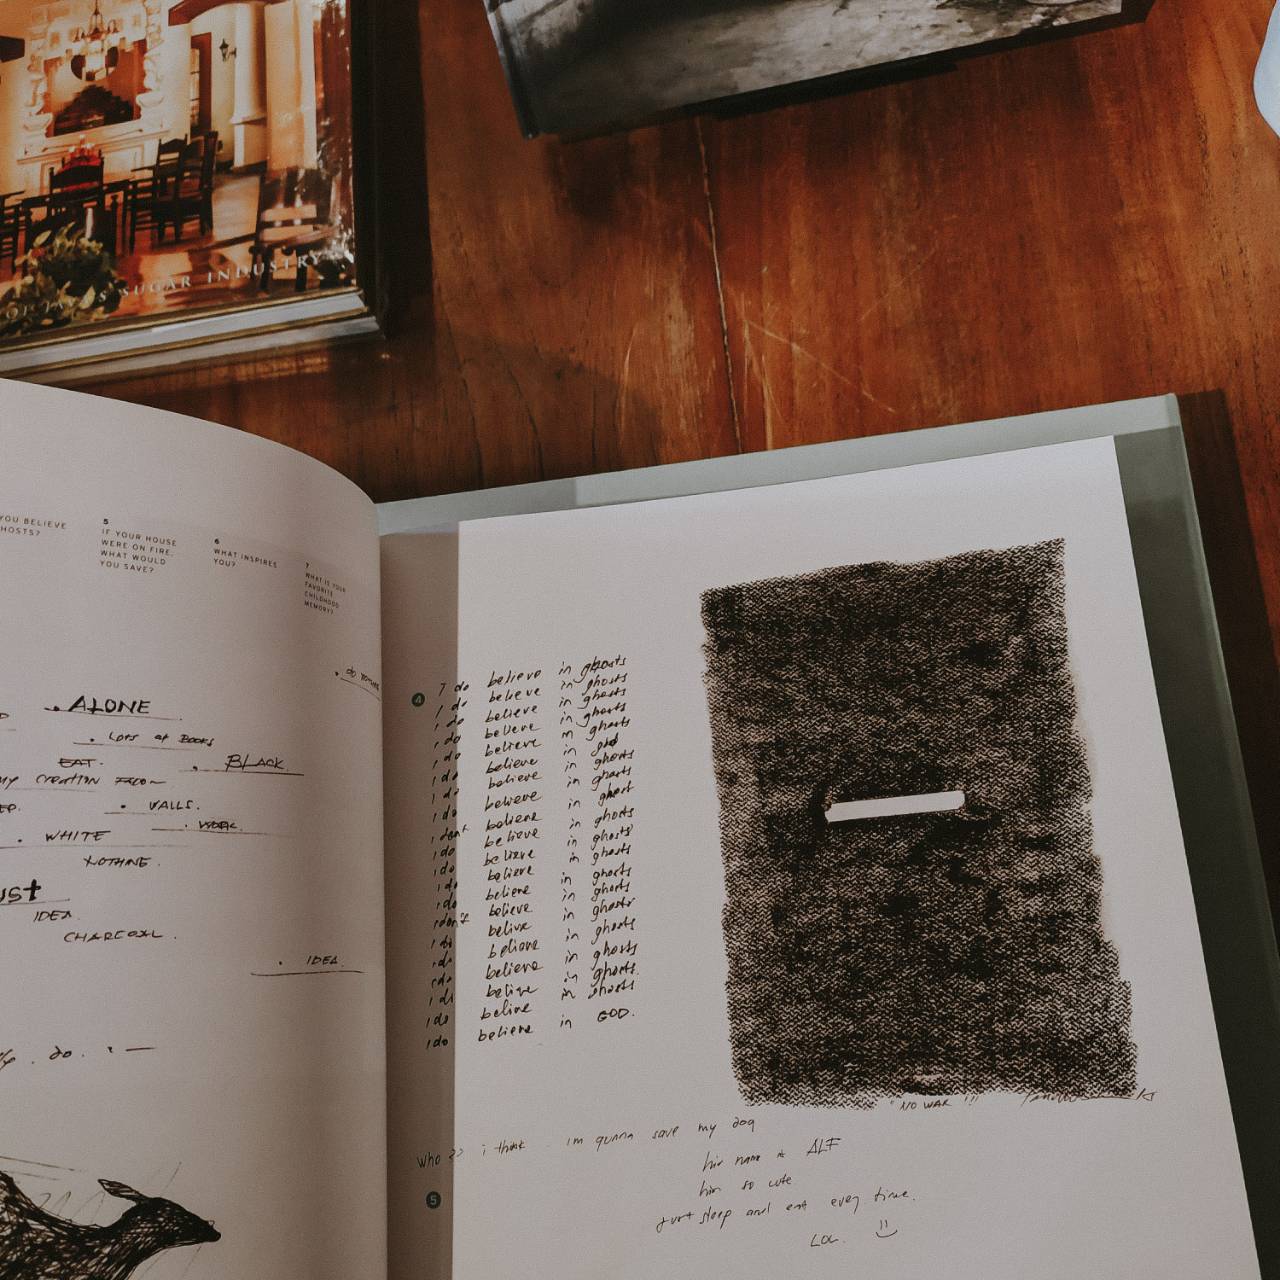 OF JAVA'S SUGAR INDUSTRY
YOU BELIEVE
HOSTS?
5
IF YOUR HOUSE
WERE ON FIRE,
WHAT WOULD
YOU SAVE?
6
WHAT INSPIRES
YOU?
7
WHAT IS YOUR
FAVORITE
CHILDHOOD
MEMORY?
. ALONE
. LOTS OF BOOKS
EAT.
. BLACK.
my creation
. WALLS.
. WHITE
. WORK.
NOTHING.
UST
IDEA.
CHARCOAL.
. IDEA.
do
4
I do believe in ghosts
I do believe in ghosts
I do believe in ghosts
I do believe in ghosts
I do believe in ghosts
I do believe in
I do believe in ghosts
I do believe in ghosts
I don't believe in ghost
I do believe in ghosts
I do believe in ghosts
I do believe in ghosts
I don't believe in ghosts
I do believe in ghosts
I do believe in ghosts
I do believe in ghosts
I do believe in ghosts.
I do believe in ghosts
I do believe in GOD.
"NO WAR !!!
Who ?? i think im gunna save my dog
his name is ALF
him so cute
just sleep and eat every time.
LOL.
5